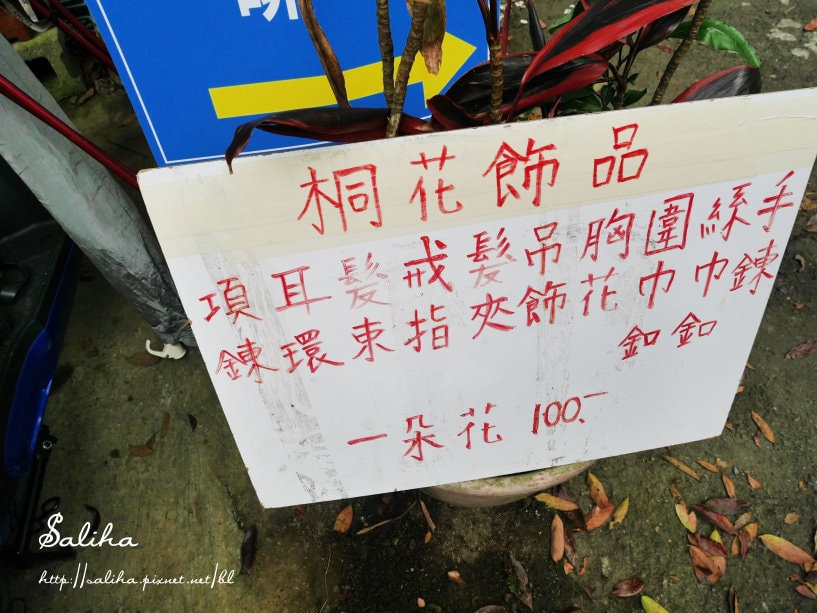 桐花飾品
項鍊
耳環
髮束
戒指
髮夾
吊飾
胸花
圍巾釦
絲巾釦
手鍊
一朵花 100.-
Saliha
http://saliha.pixnet.net/bl